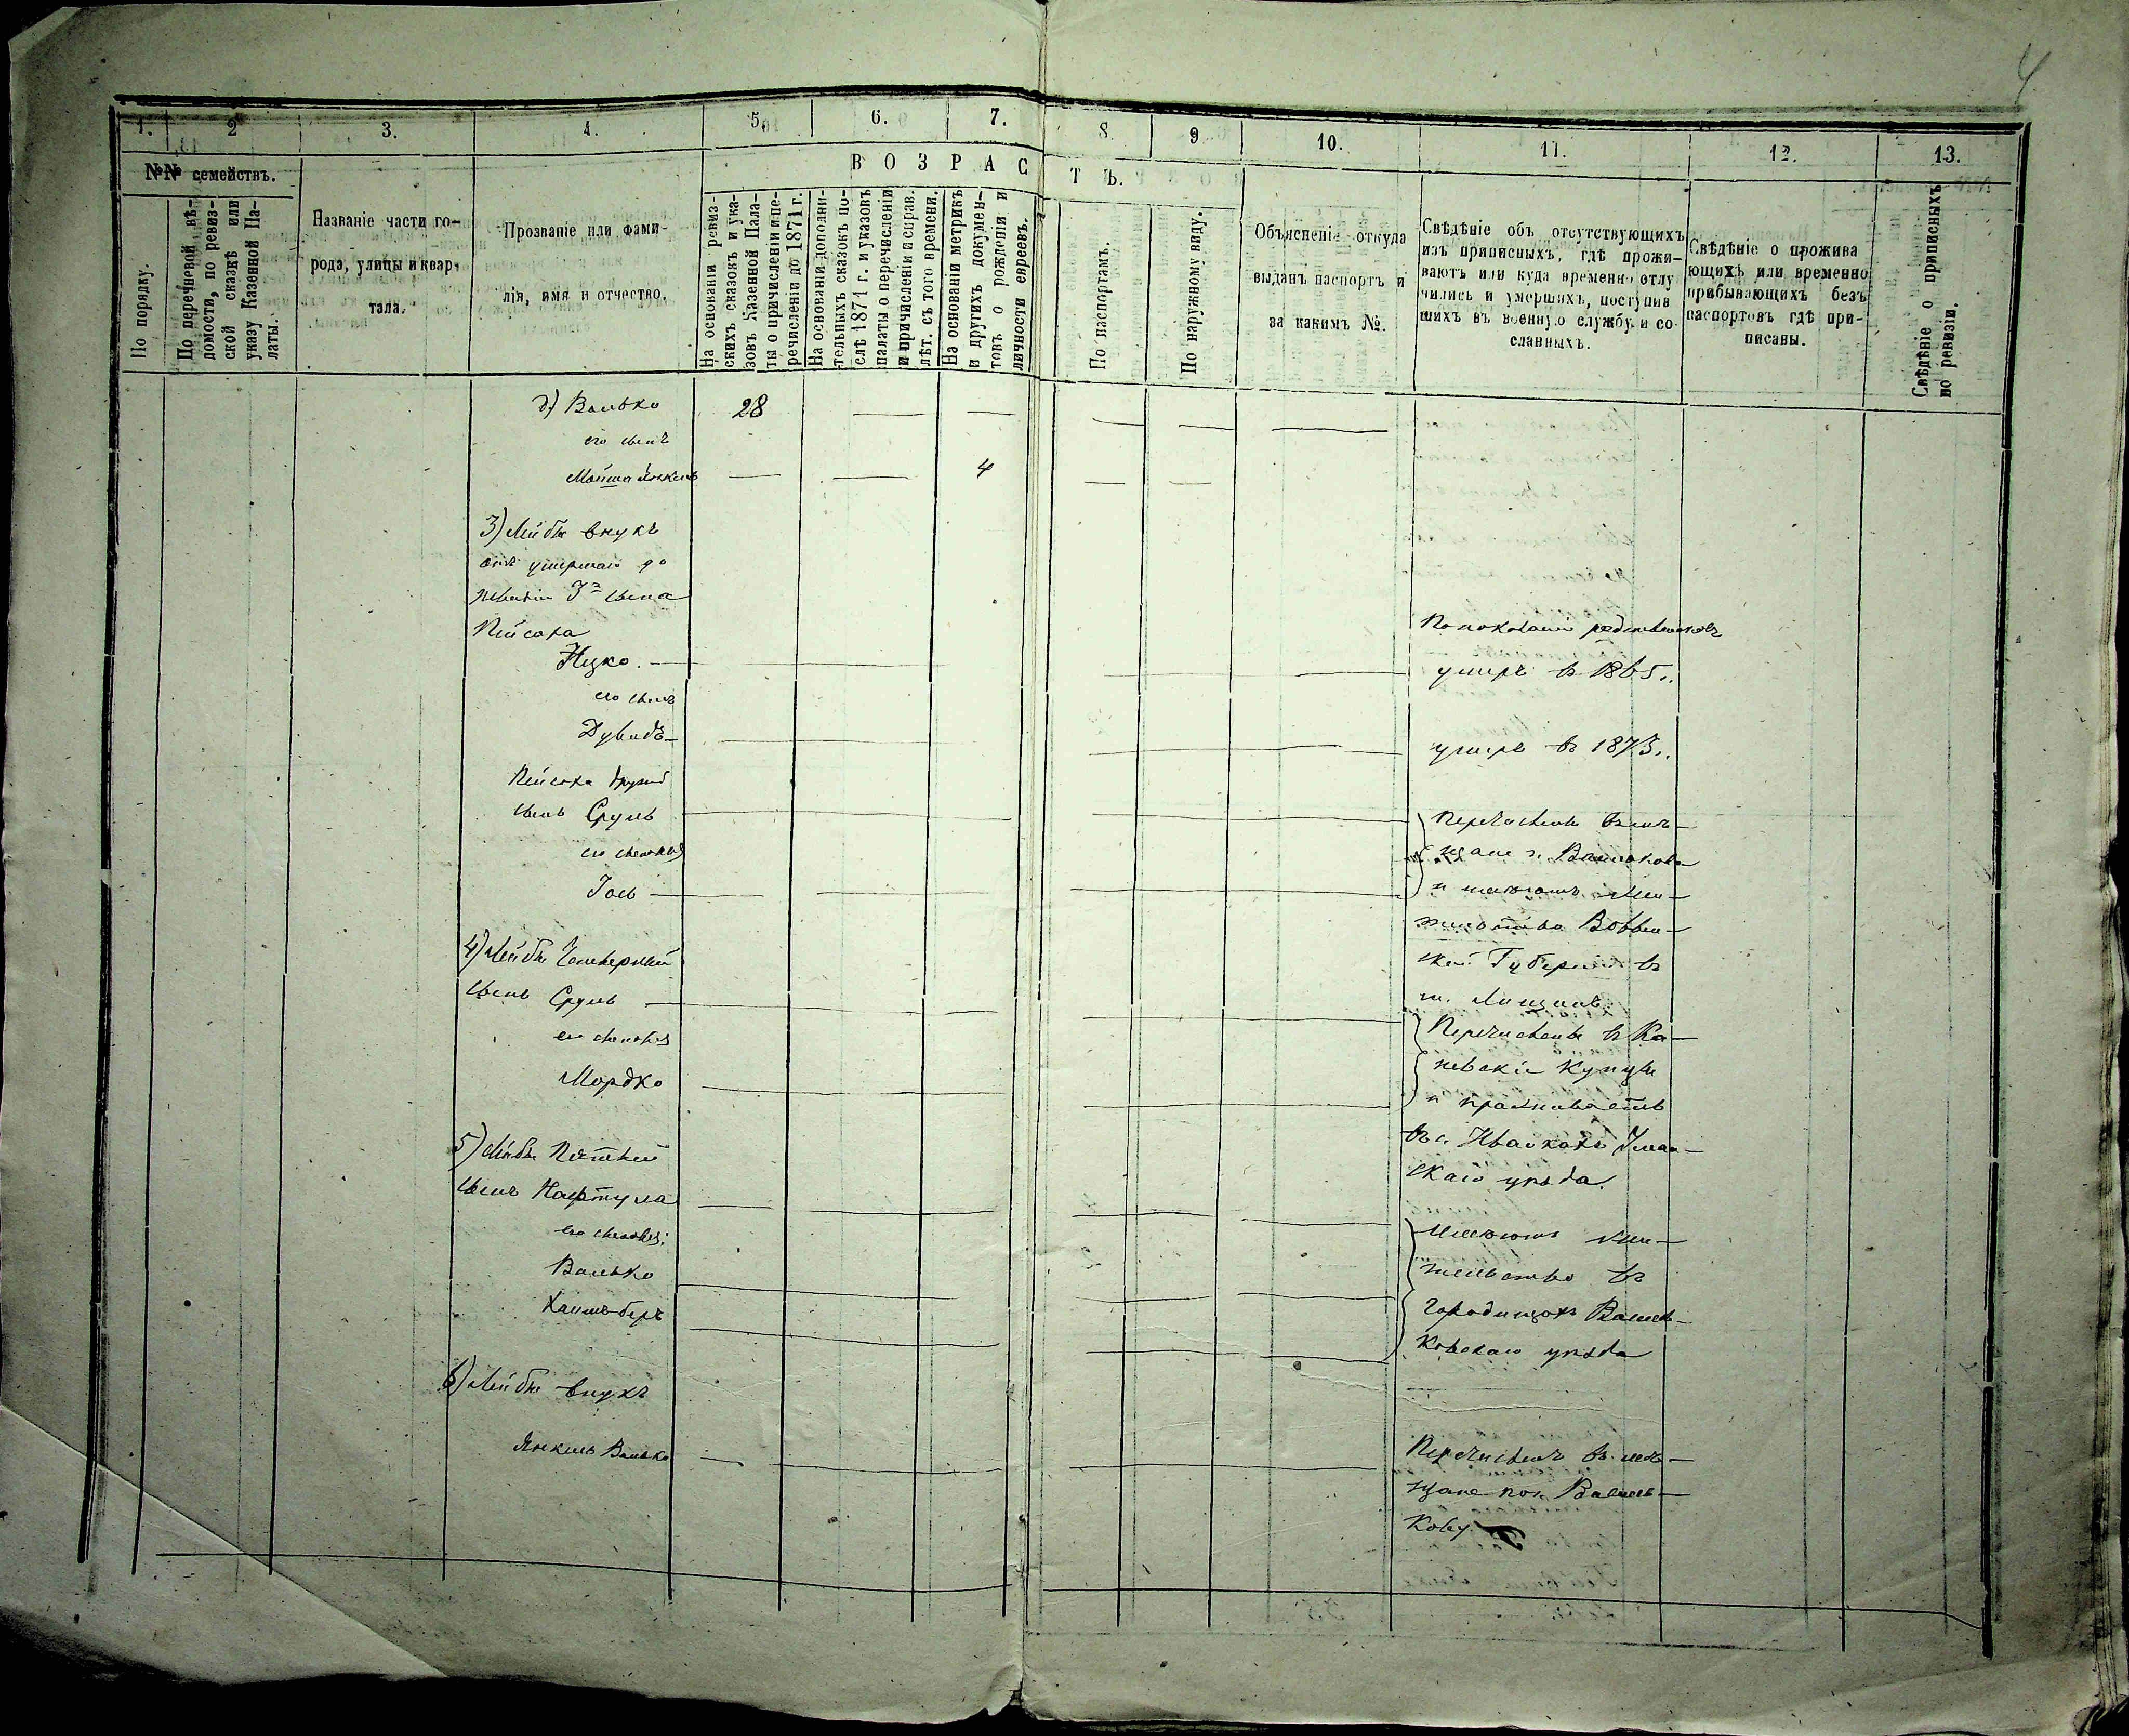 4
1.
2
3.
4.
5.
6.
7.
8.
9
10.
11.
12.
13.
№№ семействъ.
По порядку.
По перечневой вѣ-
домости, по ревиз-
ской сказкѣ или
указу Казенной Па-
латы.
Названіе части го-
рода, улицы и квар-
тала.
Прозваніе или фами-
лія, имя и отчество.
ВОЗРАСТЪ.
На основаніи ревиз-
скихъ сказокъ и ука-
зовъ Казенной Пала-
ты о причисленіи и пе-
речисленіи до 1871 г.
На основаніи дополни-
тельныхъ сказокъ по-
слѣ 1871 г. и указовъ
палаты о перечисленіи
и причисленіи и справ.
лѣт. съ того времени.
На основаніи метрикъ
и другихъ докумен-
товъ о рожденіи и
личности евреевъ.
По паспортамъ.
По наружному виду.
Объясненіе откуда
выданъ паспортъ и
за какимъ №.
Свѣдѣніе объ отсутствующихъ
изъ приписныхъ, гдѣ прожи-
ваютъ или куда временно отлу
чились и умершихъ, поступив
шихъ въ военную службу и со-
сланныхъ.
Свѣдѣніе о прожива
ющихъ или временно
прибывающихъ безъ
паспортовъ гдѣ при-
писаны.
Свѣдѣніе о приписныхъ
по ревизіи.
д) Волько 28
его сынъ
Мойша Янкель 4
3) Лейбы внукъ
отъ умершаго до
ревизіи 3го сына
Пейсаха
Ицко. умеръ въ 1865.
По показанію родственниковъ
его сынъ
Дувидъ умеръ въ 1873.
Пейсаха другой
сынъ Сруль
его сыновья
Іось
Перечислены въ мѣ-
щане г. Василькова
и имѣютъ жи-
тельство
Губерніи въ
м.
4) Лейбы четвертый
сынъ Сруль
его сыновья
Мордко
Перечислены въ Ка-
невскіе купцы
и проживаетъ
въ с. Ивахнахъ Уман-
скаго уѣзда.
5) Лейбы пятый
сынъ Нафтула
его сыновья:
Волько
Хаимъ-беръ
Имѣютъ жи-
тельство въ
Городищахъ Василь-
ковскаго уѣзда
6) Лейбы внукъ
Янкель Волько
Перечисленъ въ мѣ-
щане по г. Василь-
кову